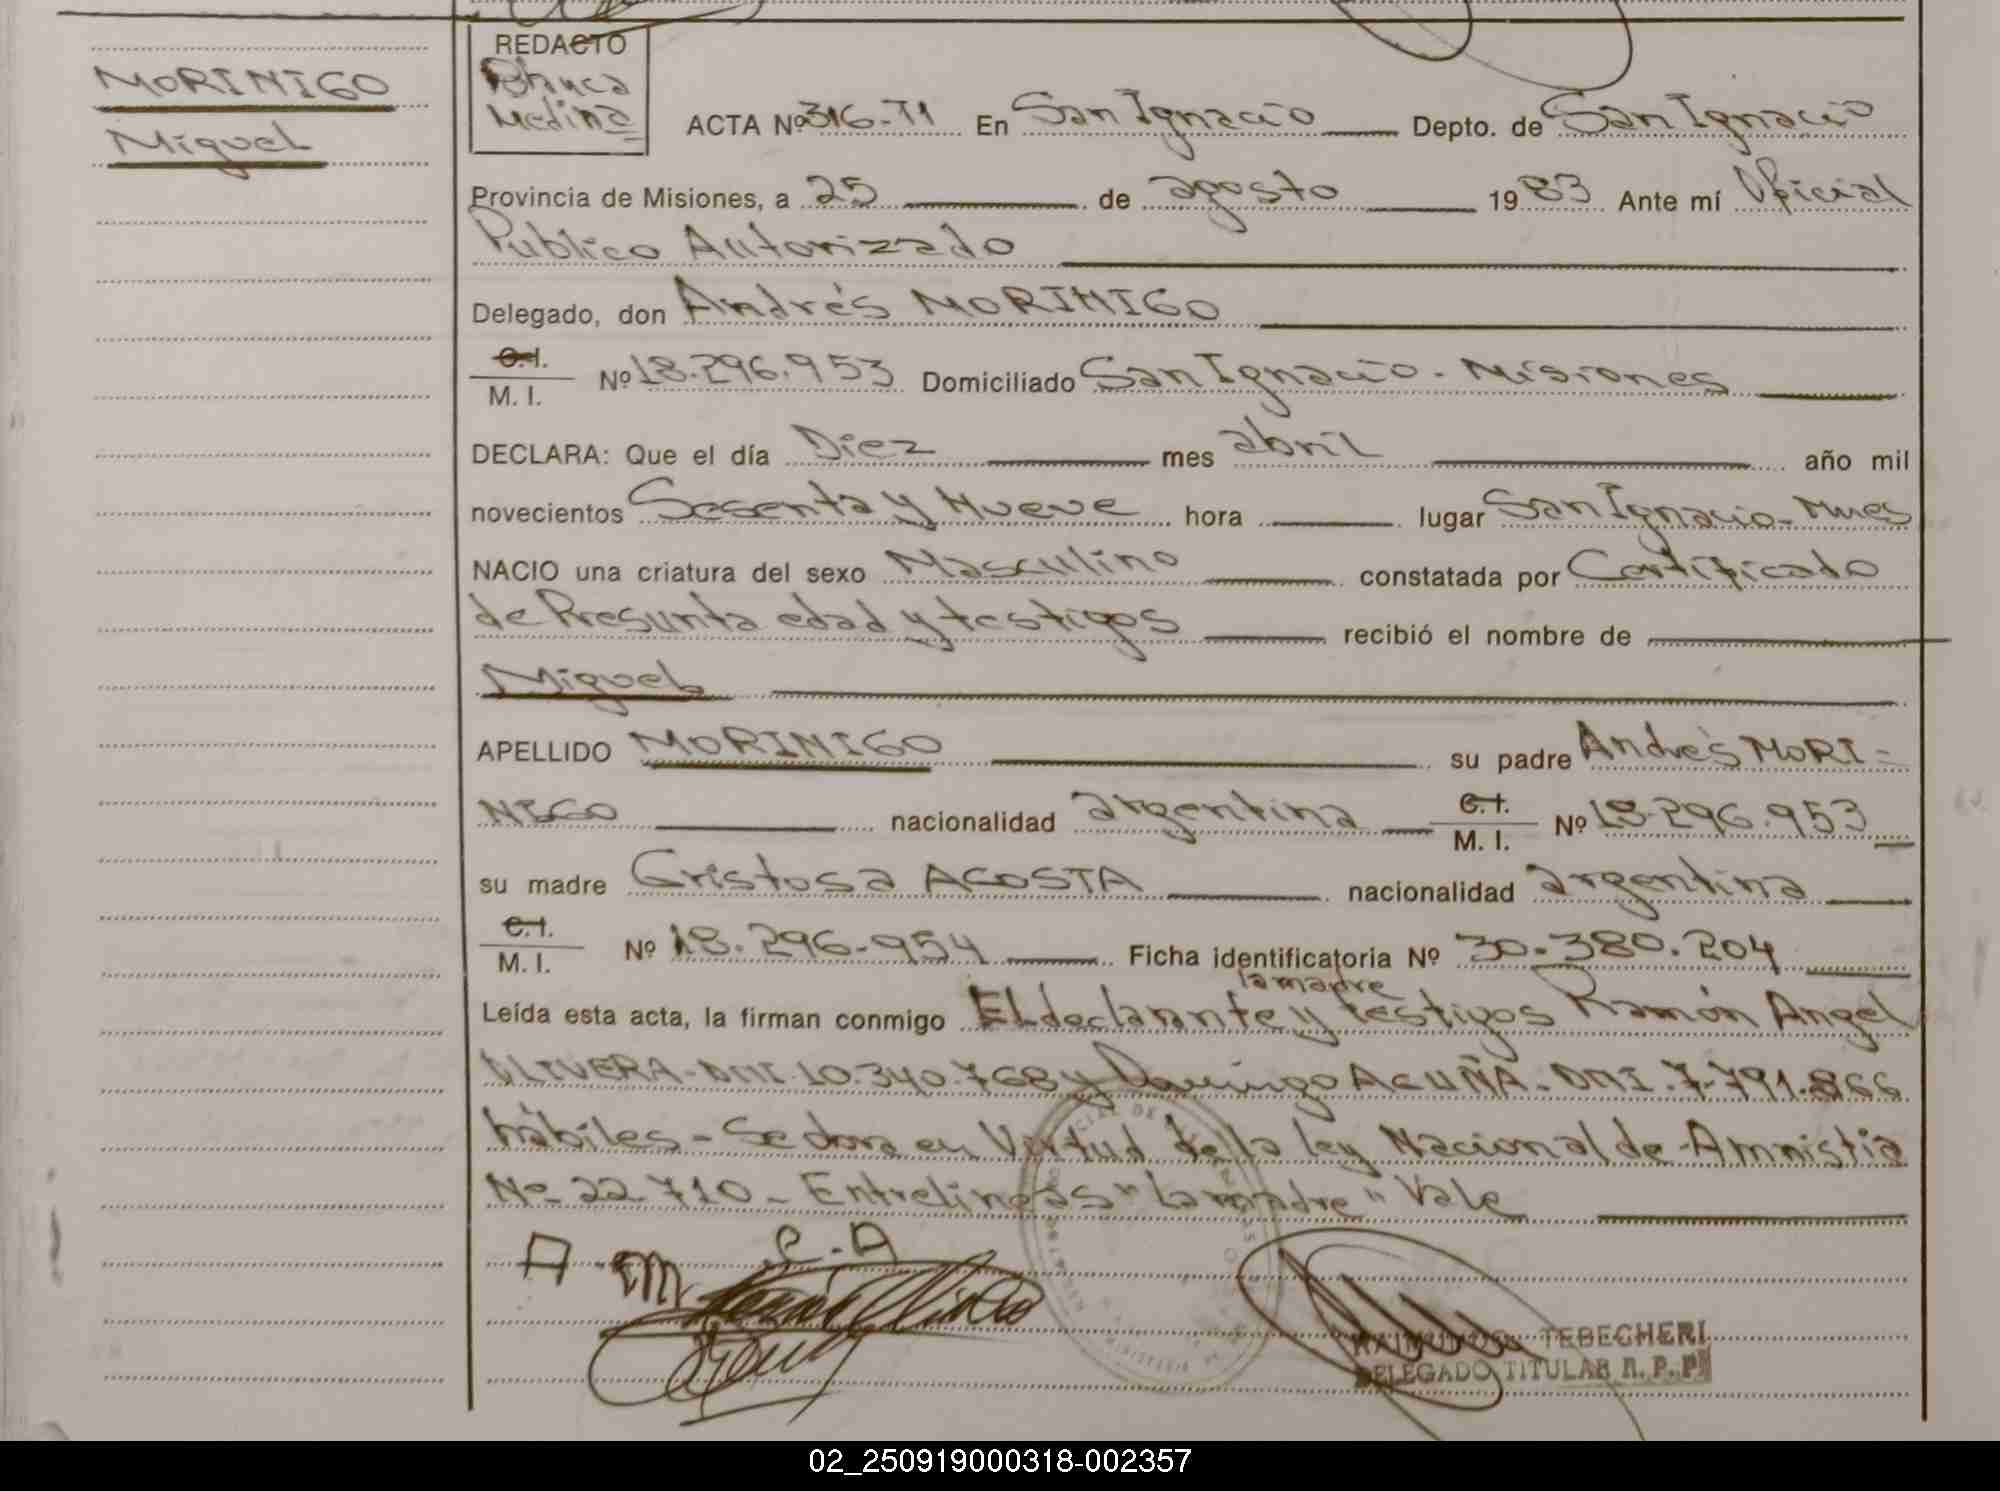 MORINIGO
Miguel
REDACTO
Blanca
Medina
ACTA Nº 316-T1 En San Ignacio Depto. de San Ignacio
Provincia de Misiones, a 25 de agosto 1983 Ante mí Oficial
Publico Autorizado
Delegado, don Andrés MORINIGO
C.I.
M. I. Nº 18.296.953 Domiciliado San Ignacio - Misiones
DECLARA: Que el día Diez mes abril año mil
novecientos Sesenta y Nueve hora lugar San Ignacio - Mnes
NACIO una criatura del sexo Masculino constatada por Certificado
de Presunta edad y testigos recibió el nombre de
Miguel
APELLIDO MORINIGO su padre Andrés MORI=
NIGO nacionalidad argentina C.I. M. I. Nº 18.296.953
su madre Cristosa ACOSTA nacionalidad argentina
C.I.
M. I. Nº 18.296.954 Ficha identificatoria Nº 30.380.204
la madre
Leída esta acta, la firman conmigo El declarante y testigos Ramón Angel
OLIVERA - DNI 10.340.768 y Domingo ACUÑA - DNI. 7.791.866
hábiles - Se labra en Vertud de la ley Nacional de Amnistia
Nº 22.710 - Entrelineas "La madre" Vale
A. M. C. A
TEBECHERI
DELEGADO TITULAR R. P. P.
02_250919000318-002357